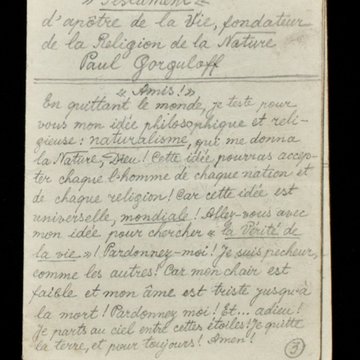 « Testament »
d'apôtre de la Vie, fondateur
de la Religion de la Nature
Paul Gorguloff
« Amis !»
En quittant le monde, je teste pour
vous mon idée philosophique et reli-
gieuse: naturalisme, qui me donna
la Nature, Dieu! Cette idée pourras accep-
ter chaque l'homme de chaque nation et
de chaque religion! Car cette idée est
universelle, mondiale! Allez-vous avec
mon idée pour chercher « la Vérité de
la vie »! Pardonnez-moi! Je suis pecheur,
comme les autres! Car mon chair est
faible et mon âme est triste jusqu'à
la mort! Pardonnez moi! Et... adieu!
Je parts au ciel entre cettes étoiles! Je quitte
la terre, et pour toujours! Amen!
3